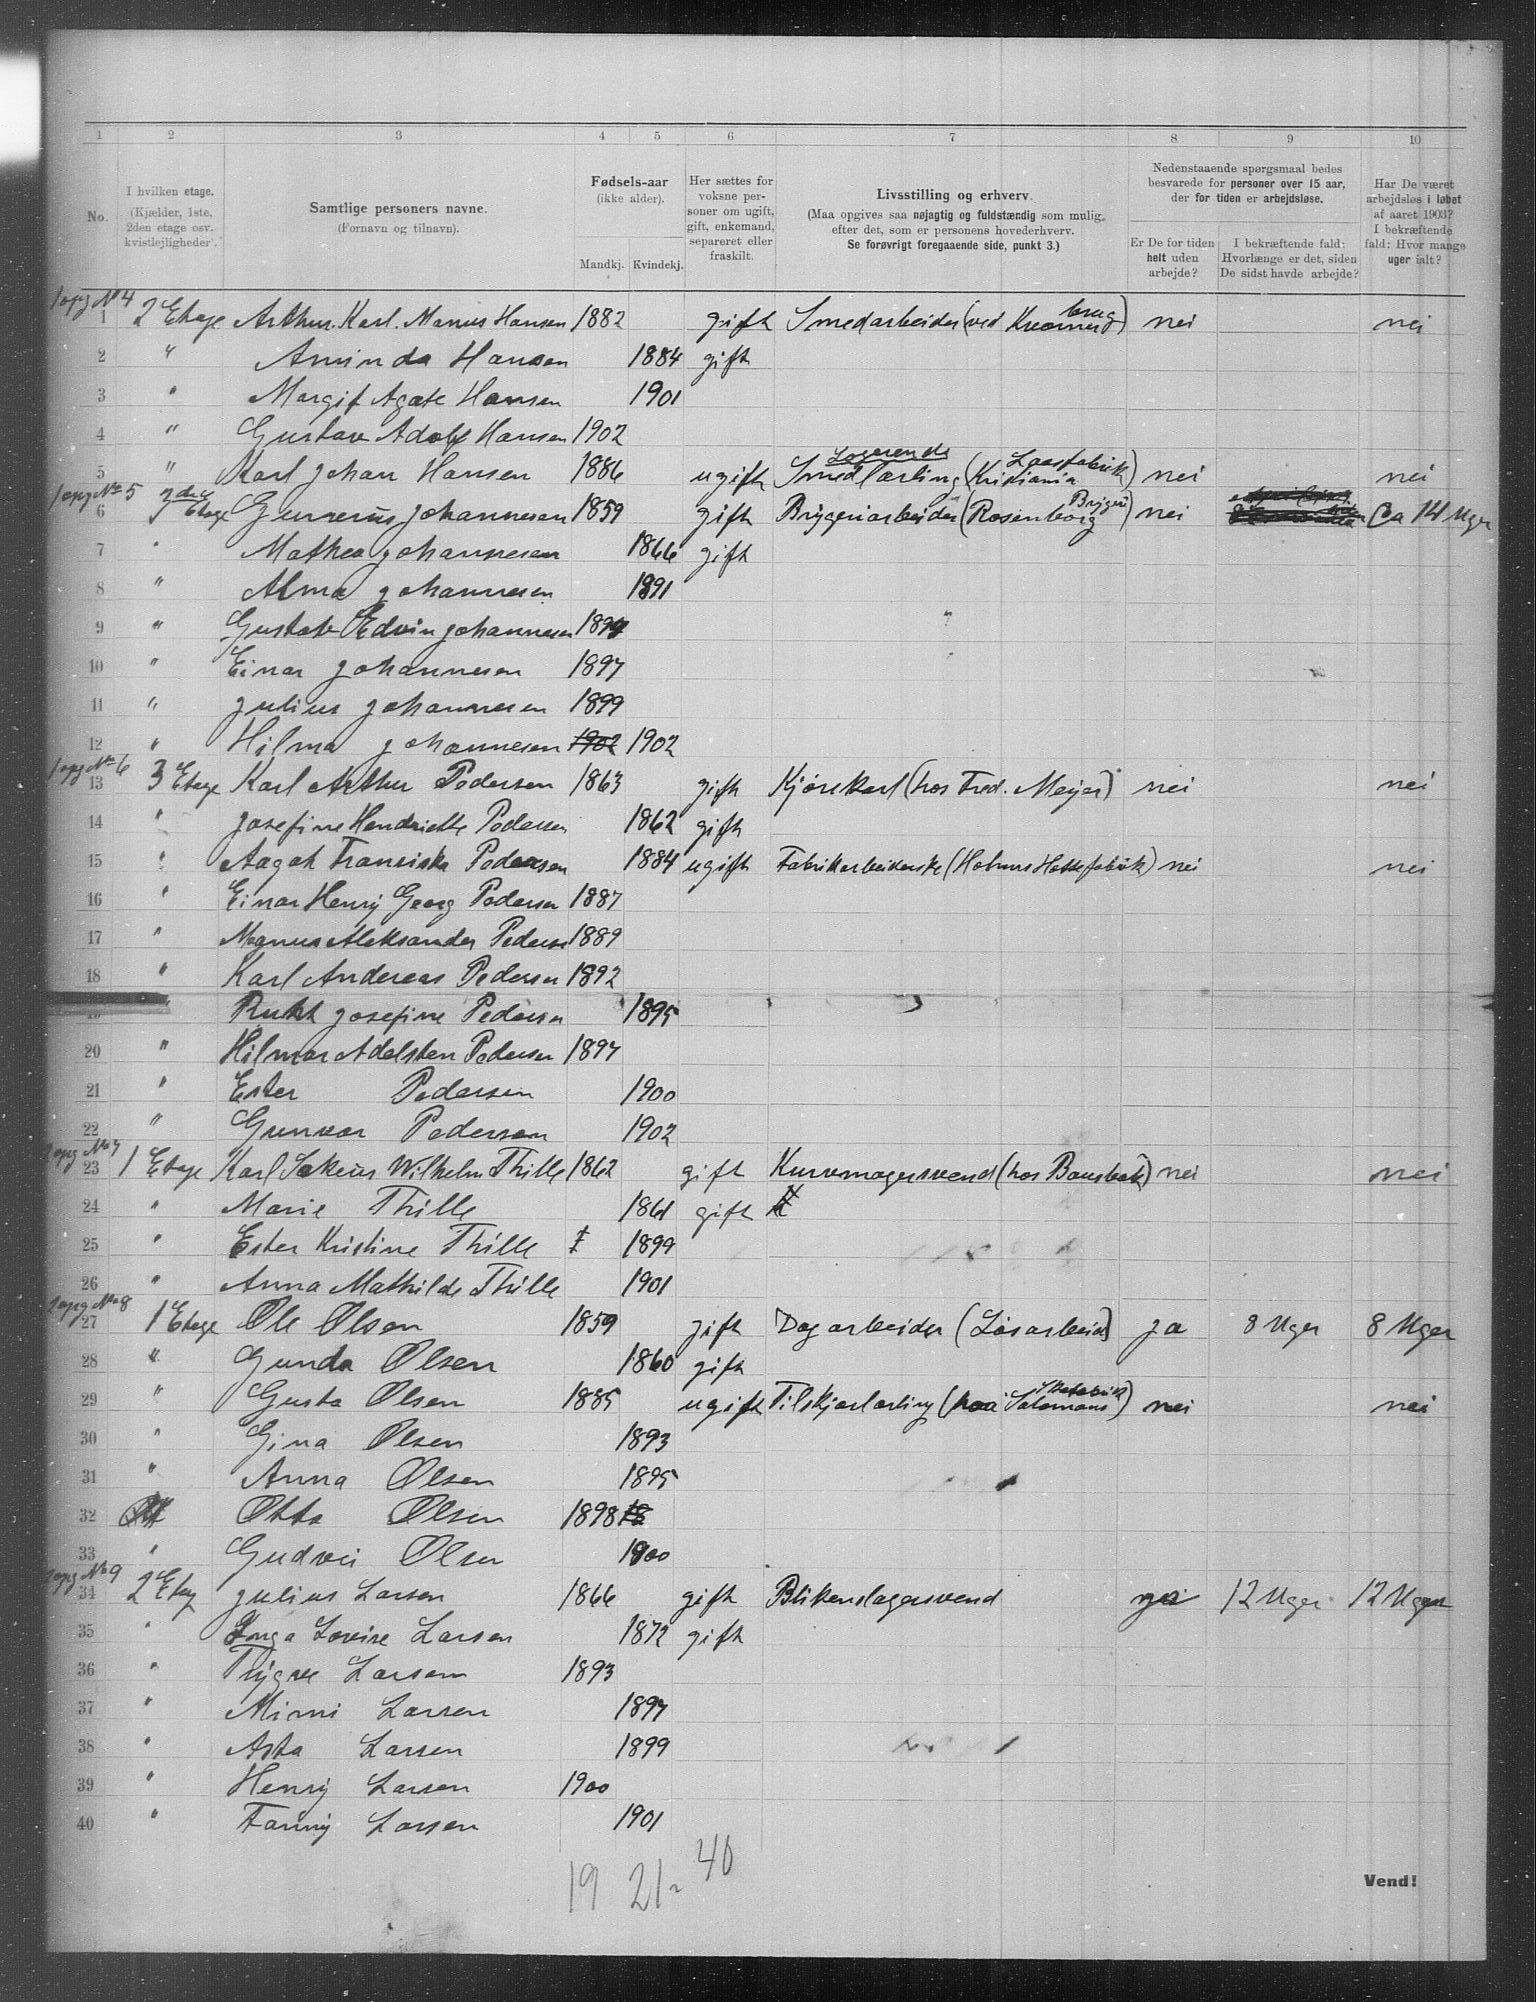 1 2 3 4 5 6 7 8 9 10
No.
I hvilken etage. (Kjælder, 1ste, 2den etage osv. kvistlejligheder).
Samtlige personers navne. (Fornavn og tilnavn).
Fødsels-aar (ikke alder). Mandkj. Kvindekj.
Her sættes for voksne personer om ugift, gift, enkemand, separeret eller fraskilt.
Livsstilling og erhverv. (Maa opgives saa nøjagtig og fuldstændig som mulig, efter det, som er personens hovederhverv. Se forøvrigt foregaaende side, punkt 3.)
Nedenstaaende spørgsmaal bedes besvarede for personer over 15 aar, der for tiden er arbejdsløse.
Er De for tiden helt uden arbejde?
I bekræftende fald: Hvorlænge er det, siden De sidst havde arbejde?
Har De været arbejdsløs i løbet af aaret 1903? I bekræftende fald: Hvor mange uger ialt?
No 4
1 2 Etage Arthur. Karl. Marius Hansen 1882 gift Smedarbeider (ved Kværner brug) nei nei
2 " Aminda Hansen 1884 gift
3 " Margit Agate Hansen 1901
4 " Gustav Adolf Hansen 1902
5 " Karl Johan Hansen 1886 ugift Logerende Smedlærling (Kristiania Laasfabrik) nei nei
No 5
6 Etage Johannesen 1859 gift Bryggeriarbeider (Rosenborg Bryggeri) nei Ca 14 Uger
7 " Mathea Johannesen 1866 gift
8 " Alma Johannesen 1891
9 " Gustav Edvin Johannesen
10 " Einar Johannesen 1897
11 " Julius Johannesen 1899
12 " Hilma Johannesen 1902 1902
No 6
13 3 Etage Karl Arthur Pedersen 1863 gift Kjørekarl (hos Fred. Meyer) nei nei
14 " Josefine Hendriette Pedersen 1862 gift
15 " Aagot Franciska Pedersen 1884 ugift Fabrikarbeiderske (Holmens Hattefabrik) nei nei
16 " Einar Henry Georg Pedersen 1887
17 " Magnus Aleksander Pedersen 1889
18 " Karl Andreas Pedersen 1892
19 " Ruth Josefine Pedersen 1895
20 " Hilmar Adelsten Pedersen 1897
21 " Ester Pedersen 1900
22 " Gunvor Pedersen 1902
No 7
23 1 Etage Karl Wilhelm Thille 1862 gift Kurvmagersvend (hos Bansbak) nei nei
24 " Marie Thille 1861 gift
25 " Ester Kristine Thille 1899
26 " Anna Mathilde Thille 1901
No 8
27 1 Etage Ole Olsen 1859 gift Dagarbeider (Løsarbeid) ja 8 Uger 8 Uger
28 " Gunda Olsen 1860 gift
29 " Gusta Olsen 1885 ugift Tilskjærlærling (hos Salomons Skofabrik) nei nei
30 " Gina Olsen 1893
31 " Anna Olsen 1895
32 Otto Olsen 1898
33 " Gudvei Olsen 1900
No 9
34 2 Etag Julius Larsen 1866 gift Blikenslagersvend 12 Uger 12 Uger
35 " Inga Lovise Larsen 1872 gift
36 " Trygve Larsen 1893
37 " Mimi Larsen 1897
38 " Asta Larsen 1899
39 " Henry Larsen 1900
40 " Fanny Larsen 1901
19 21 - 40
Vend!